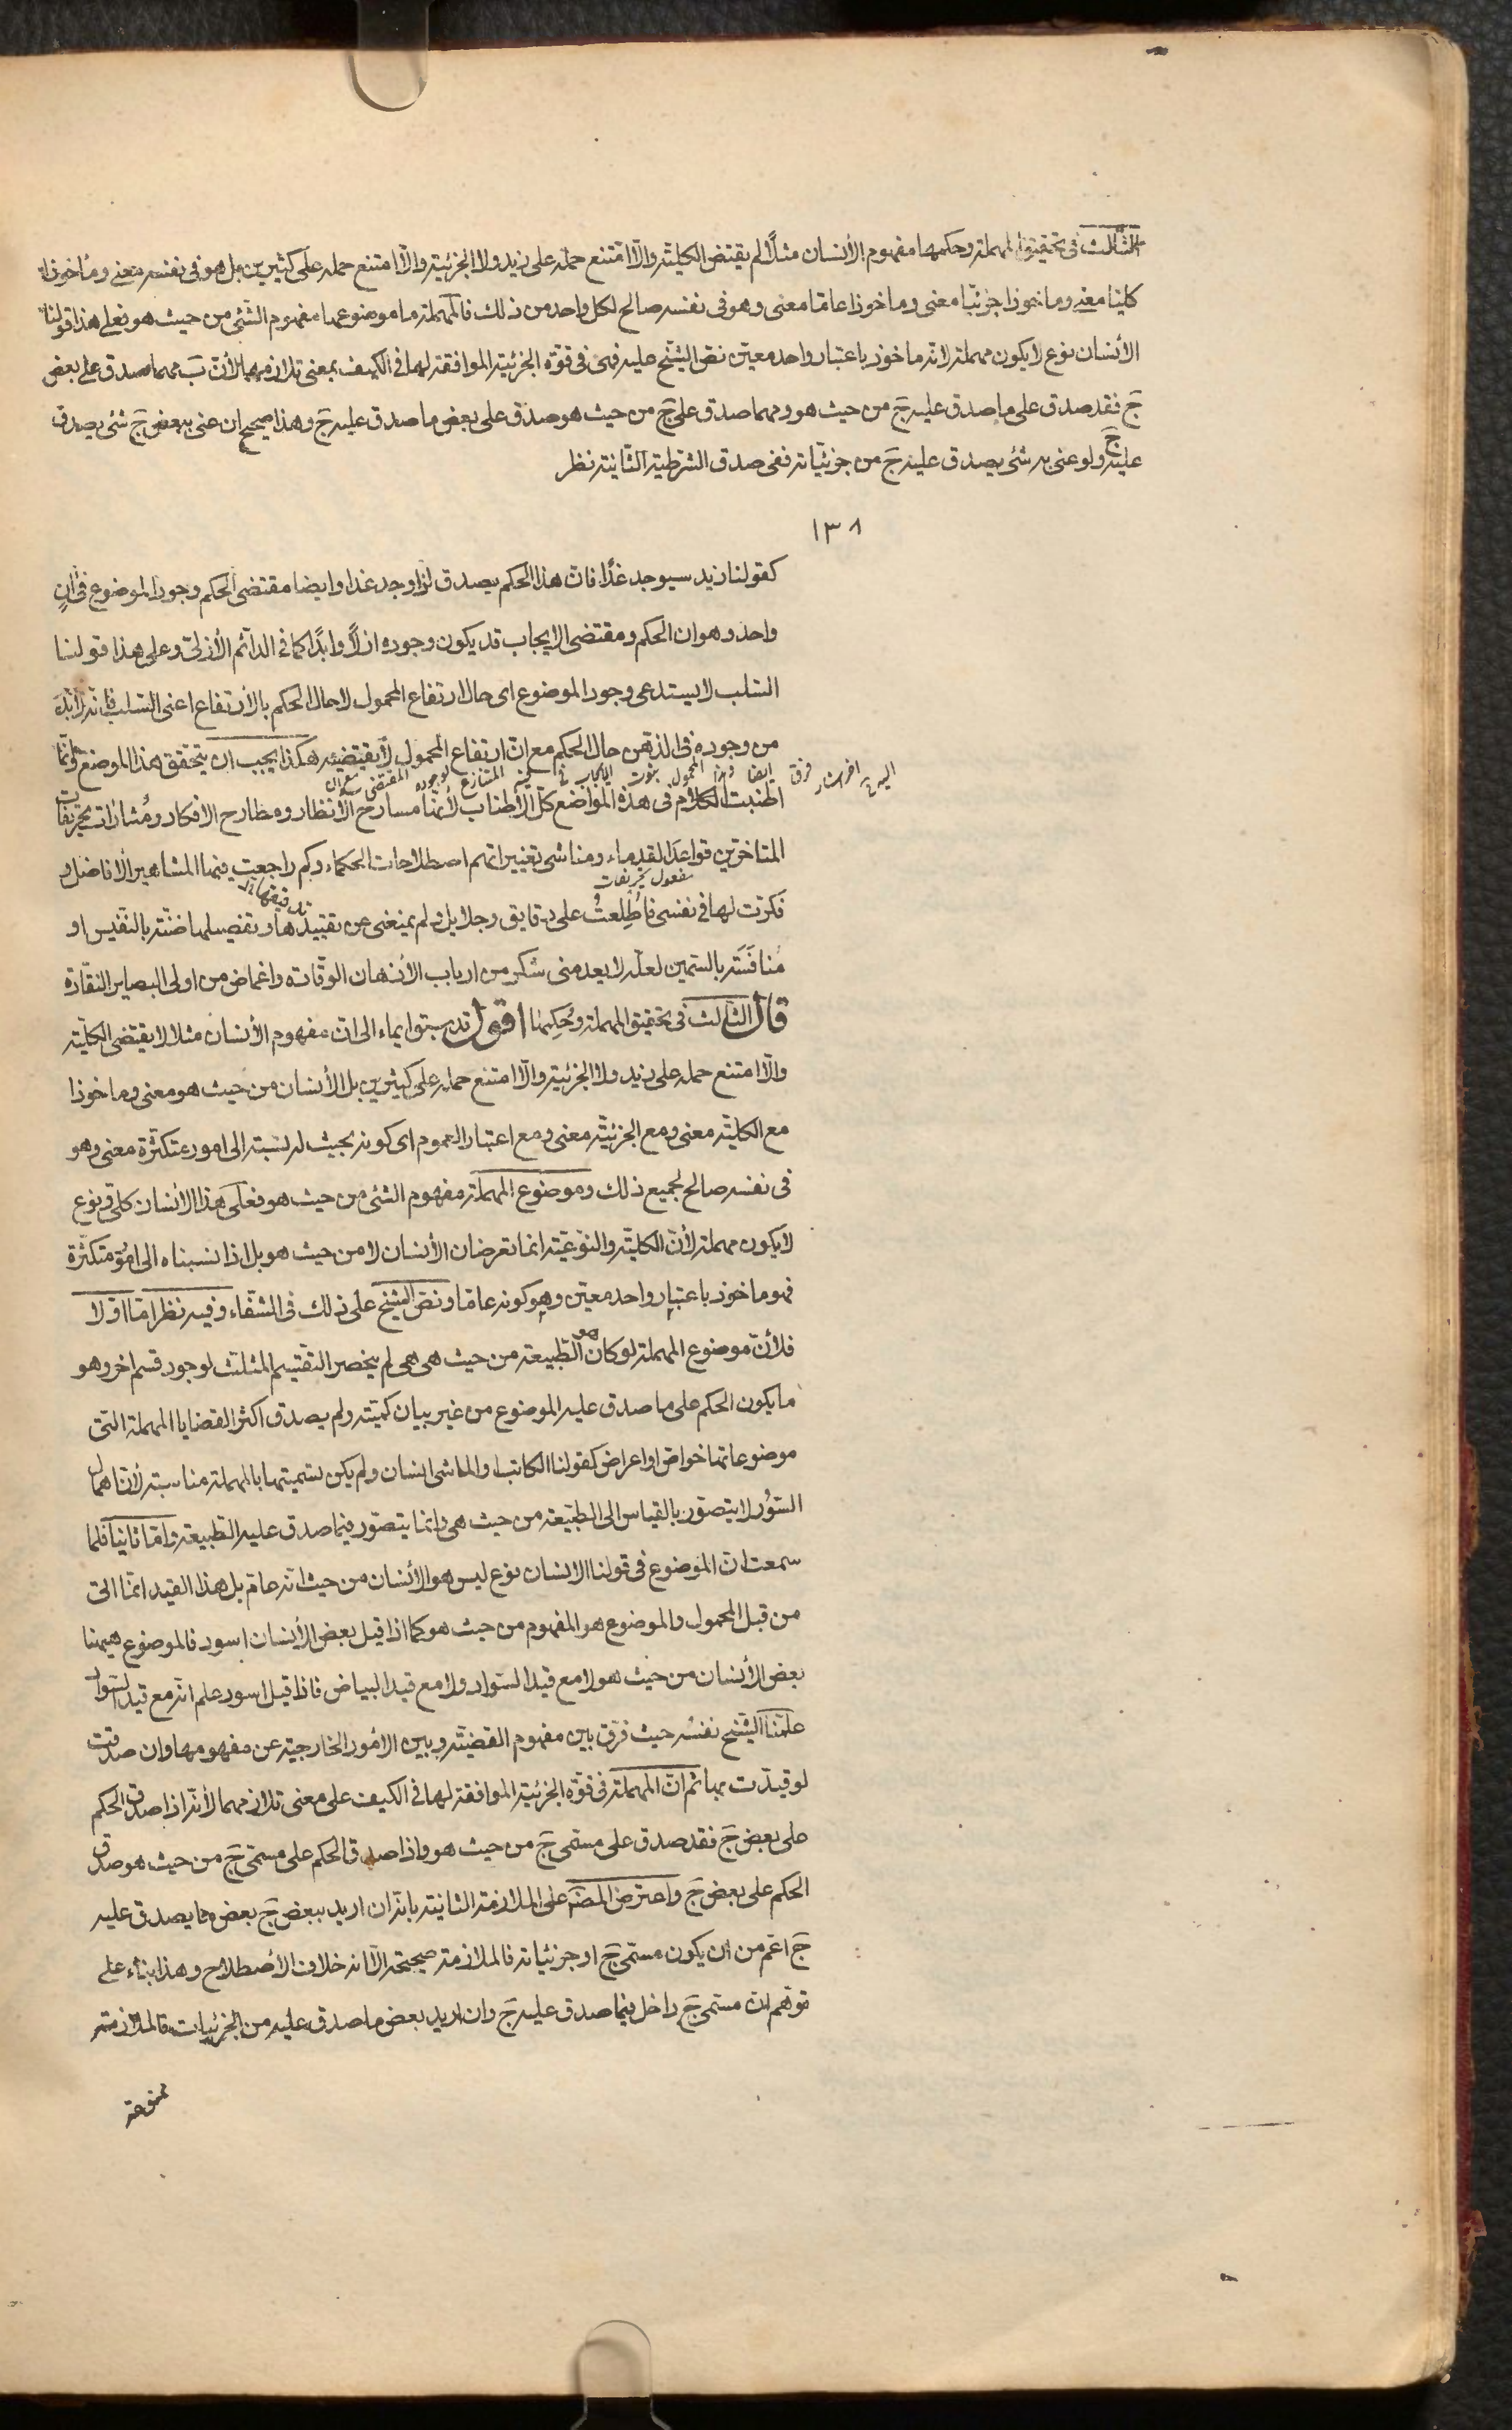 الثالث في تحقيق المهملة وحكمها مفهوم الأنسان مثلاً لم يقتض الكلية والّا امتنع حمله على زيد ولا الجزئية والّا امتنع حمله على كثيرين بل هو في نفسه معنى ومأخوذا
كليا معنى وماخوذا جزئيّا معنى وماخوذا عامّا معنى وهو في نفسه صالح لكل واحد من ذلك فالمهملة ما موضوعها مفهوم الشئ من حيث هو فعلى هذا قولنا
الأنسان نوع لا يكون مهملة لانه ماخوذ باعتبار واحد معين نصّ الشيخ عليه فهى في قوّة الجزئية الموافقة لها في الكيف بمعنى تلازمهما لأن بَ مهما صدق على بعض
جَ فقد صدق على ما صدق عليه جَ من حيث هو ومهما صدق على جَ من حيث هو صدق على بعض ما صدق عليه جَ وهذا صحيح ان عنى ببعض جَ شئ يصدق
عليه جَ ولو عنى به شئ يصدق عليه جَ من جزئياته ففى صدق الشرطية الثانية نظر
١٣٨
كقولنا زيد سيوجد غدًا فان هذا الحكم يصدق اذا وجد غدا وايضا مقتضى الحكم وجود الموضوع في آنٍ
واحد وهو ان الحكم ومقتضى الايجاب قد يكون وجوده ازلاً وابدًا كما في الدائم الأزلى وعلى هذا قولنا
السّلب لا يستدعى وجود الموضوع اى حال ارتفاع المحمول لا حال الحكم بالأرتفاع اعنى السّلب فانه لا بدّ
من وجوده في الذهن حال الحكم مع ان ارتفاع المحمول لا يقتضيه هكذا يجب ان يتحقق هذا الموضع وانما
اطنبت الكلام في هذه المواضع كل الأطناب لأنها مسارح الأنظار ومطارح الافكار ومثارات تحريفات
المتاخرين قواعد القدماء ومناشى تغييراتهم اصطلاحات الحكماء وكم راجعت فيها المشاهير الأفاضل و
مفعول تحريفات
فكّرت لها في نفسى فأُطلِعتُ على دقايق وجلايل ولم يمنعنى عن تقييدها وتفصيلها ضنّة بالنفيس او
مُنافَسَة بالثمين لعله لا يعدمنى شكر من ارباب الأذهان الوقّادة واغماض من اولى البصاير النقّادة
قال الثالث في تحقيق المهملة وحُكمها اقول قد سبق ايماء الى ان مفهوم الأنسان مثلا لا يقتضى الكلية
والّا امتنع حمله على زيد ولا الجزئية والّا امتنع حمله على كثيرين بل الأنسان من حيث هو معنى وماخوذا
مع الكلية معنى ومع الجزئية معنى ومع اعتبار العموم اى كونه بحيث له نسبة الى امور متكثرة معنى وهو
في نفسه صالح لجميع ذلك وموضوع المهملة مفهوم الشئ من حيث هو فعلى هذا الأنسان كلى ونوع
لا يكون مهملة لأن الكلية والنوعية انما تعرضان الأنسان لا من حيث هو بل اذا نسبناه الى امور متكثرة
فهو ماخوذ باعتبار واحد معين وهو كونه عاما ونص الشيخ على ذلك في الشفاء وفيه نظر امّا اولا
فلأن موضوع المهملة لو كان هو الطبيعة من حيث هى هى لم ينحصر التقسيم المثلث لوجود قسم اخر وهو
ما يكون الحكم على ما صدق عليه الموضوع من غير بيان كميته ولم يصدق اكثر القضايا المهملة التى
موضوعاتها خواص او اعراض كقولنا الكاتب والماشى انسان ولم يكن تسميتها بالمهملة مناسبة لأن اهمال
السّور لا يتصوّر بالقياس الى الطبيعة من حيث هى وانما يتصوّر فيما صدق عليه الطبيعة وامّا ثانيا فلما
سمعت ان الموضوع في قولنا الانسان نوع ليس هو الأنسان من حيث انه عام بل هذا القيد انما اتى
من قبل المحمول والموضوع هو المفهوم من حيث هو كما اذا قيل بعض الأنسان اسود فالموضوع هيهنا
بعض الأنسان من حيث هو لا مع قيد السّواد ولا مع قيد البياض فاذا قيل اسود علم انه مع قيد السّواد
علّمنا الشيخ نفسُه حيث فرّق بين مفهوم القضيّة وبين الأمور الخارجية عن مفهومها وان صدقت
لو قيدت بها ثم ان المهملة في قوّة الجزئية الموافقة لها في الكيف على معنى تلازمهما لأنه اذا صدق الحكم
على بعض جَ فقد صدق على مسمّى جَ من حيث هو واذا صدق الحكم على مسمّى جَ من حيث هو صدق
الحكم على بعض جَ واعترض المصَ على الملازمة الثانية بانه ان اريد ببعض جَ بعض ما يصدق عليه
جَ اعم من ان يكون مسمّى جَ او جزئياته فالملازمة صحيحة الّا انه خلاف الأصطلاح وهذا بناء على
توهّم ان مسمّى جَ داخل فيما صدق عليه جَ وان اريد بعض ما صدق عليه من الجزئيات فالملازمة
ممنوعة